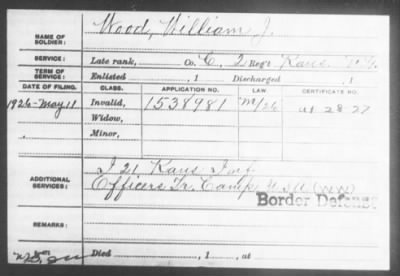 Wood, William J.
NAME OF SOLDIER:
SERVICE: Late rank, Co. C, 2 Reg't Kans
TERM OF SERVICE: Enlisted , 1 Discharged , 1
DATE OF FILING. CLASS. APPLICATION NO. LAW. CERTIFICATE NO.
1926-May 11 Invalid, 1538981
Widow,
Minor,
ADDITIONAL SERVICES: I 21 Kans Inf
Officers Tr. Camp U S A (WW)
Border Defense
REMARKS:
Died , 1 , at